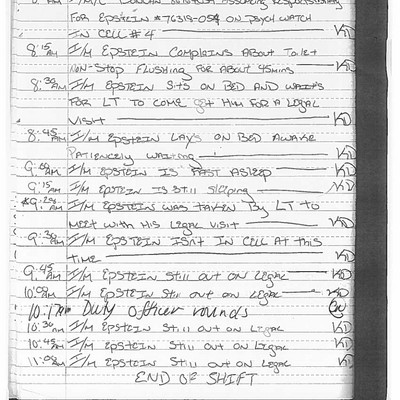 AM I/M/C DUNCAN ASSUMES RESPONSIBILITY
FOR EPSTEIN #76318-054 ON PSYCH WATCH
IN CELL #4 KD
8:15 AM I/M EPSTEIN COMPLAINS ABOUT TOILET
NON-STOP FLUSHING FOR ABOUT 45mins KD
8:30 AM I/M EPSTEIN SITS ON BED AND WAITS
FOR LT TO COME get HIM FOR A LEGAL
VISIT KD
8:45 AM I/M EPSTEIN LAYS ON BED AWAKE
PATIENCELY WAITING KD
9:00 AM I/M EPSTEIN IS FAST ASLEEP KD
9:15 AM I/M EPSTEIN IS STILL SLEEPING KD
*9:29 AM I/M EPSTEIN WAS TAKEN BY LT TO
MEET WITH HIS LEGAL VISIT KD
9:30 AM I/M EPSTEIN ISN'T IN CELL AT THIS
TIME KD
9:45 AM I/M EPSTEIN STILL OUT ON LEGAL KD
10:00 AM I/M EPSTEIN STILL OUT ON LEGAL KD
10:17 AM Duty Officer rounds
10:30 AM I/M EPSTEIN STILL OUT ON LEGAL KD
10:45 AM I/M EPSTEIN STILL OUT ON LEGAL KD
11:00 AM I/M EPSTEIN STILL OUT ON LEGAL KD
END OF SHIFT